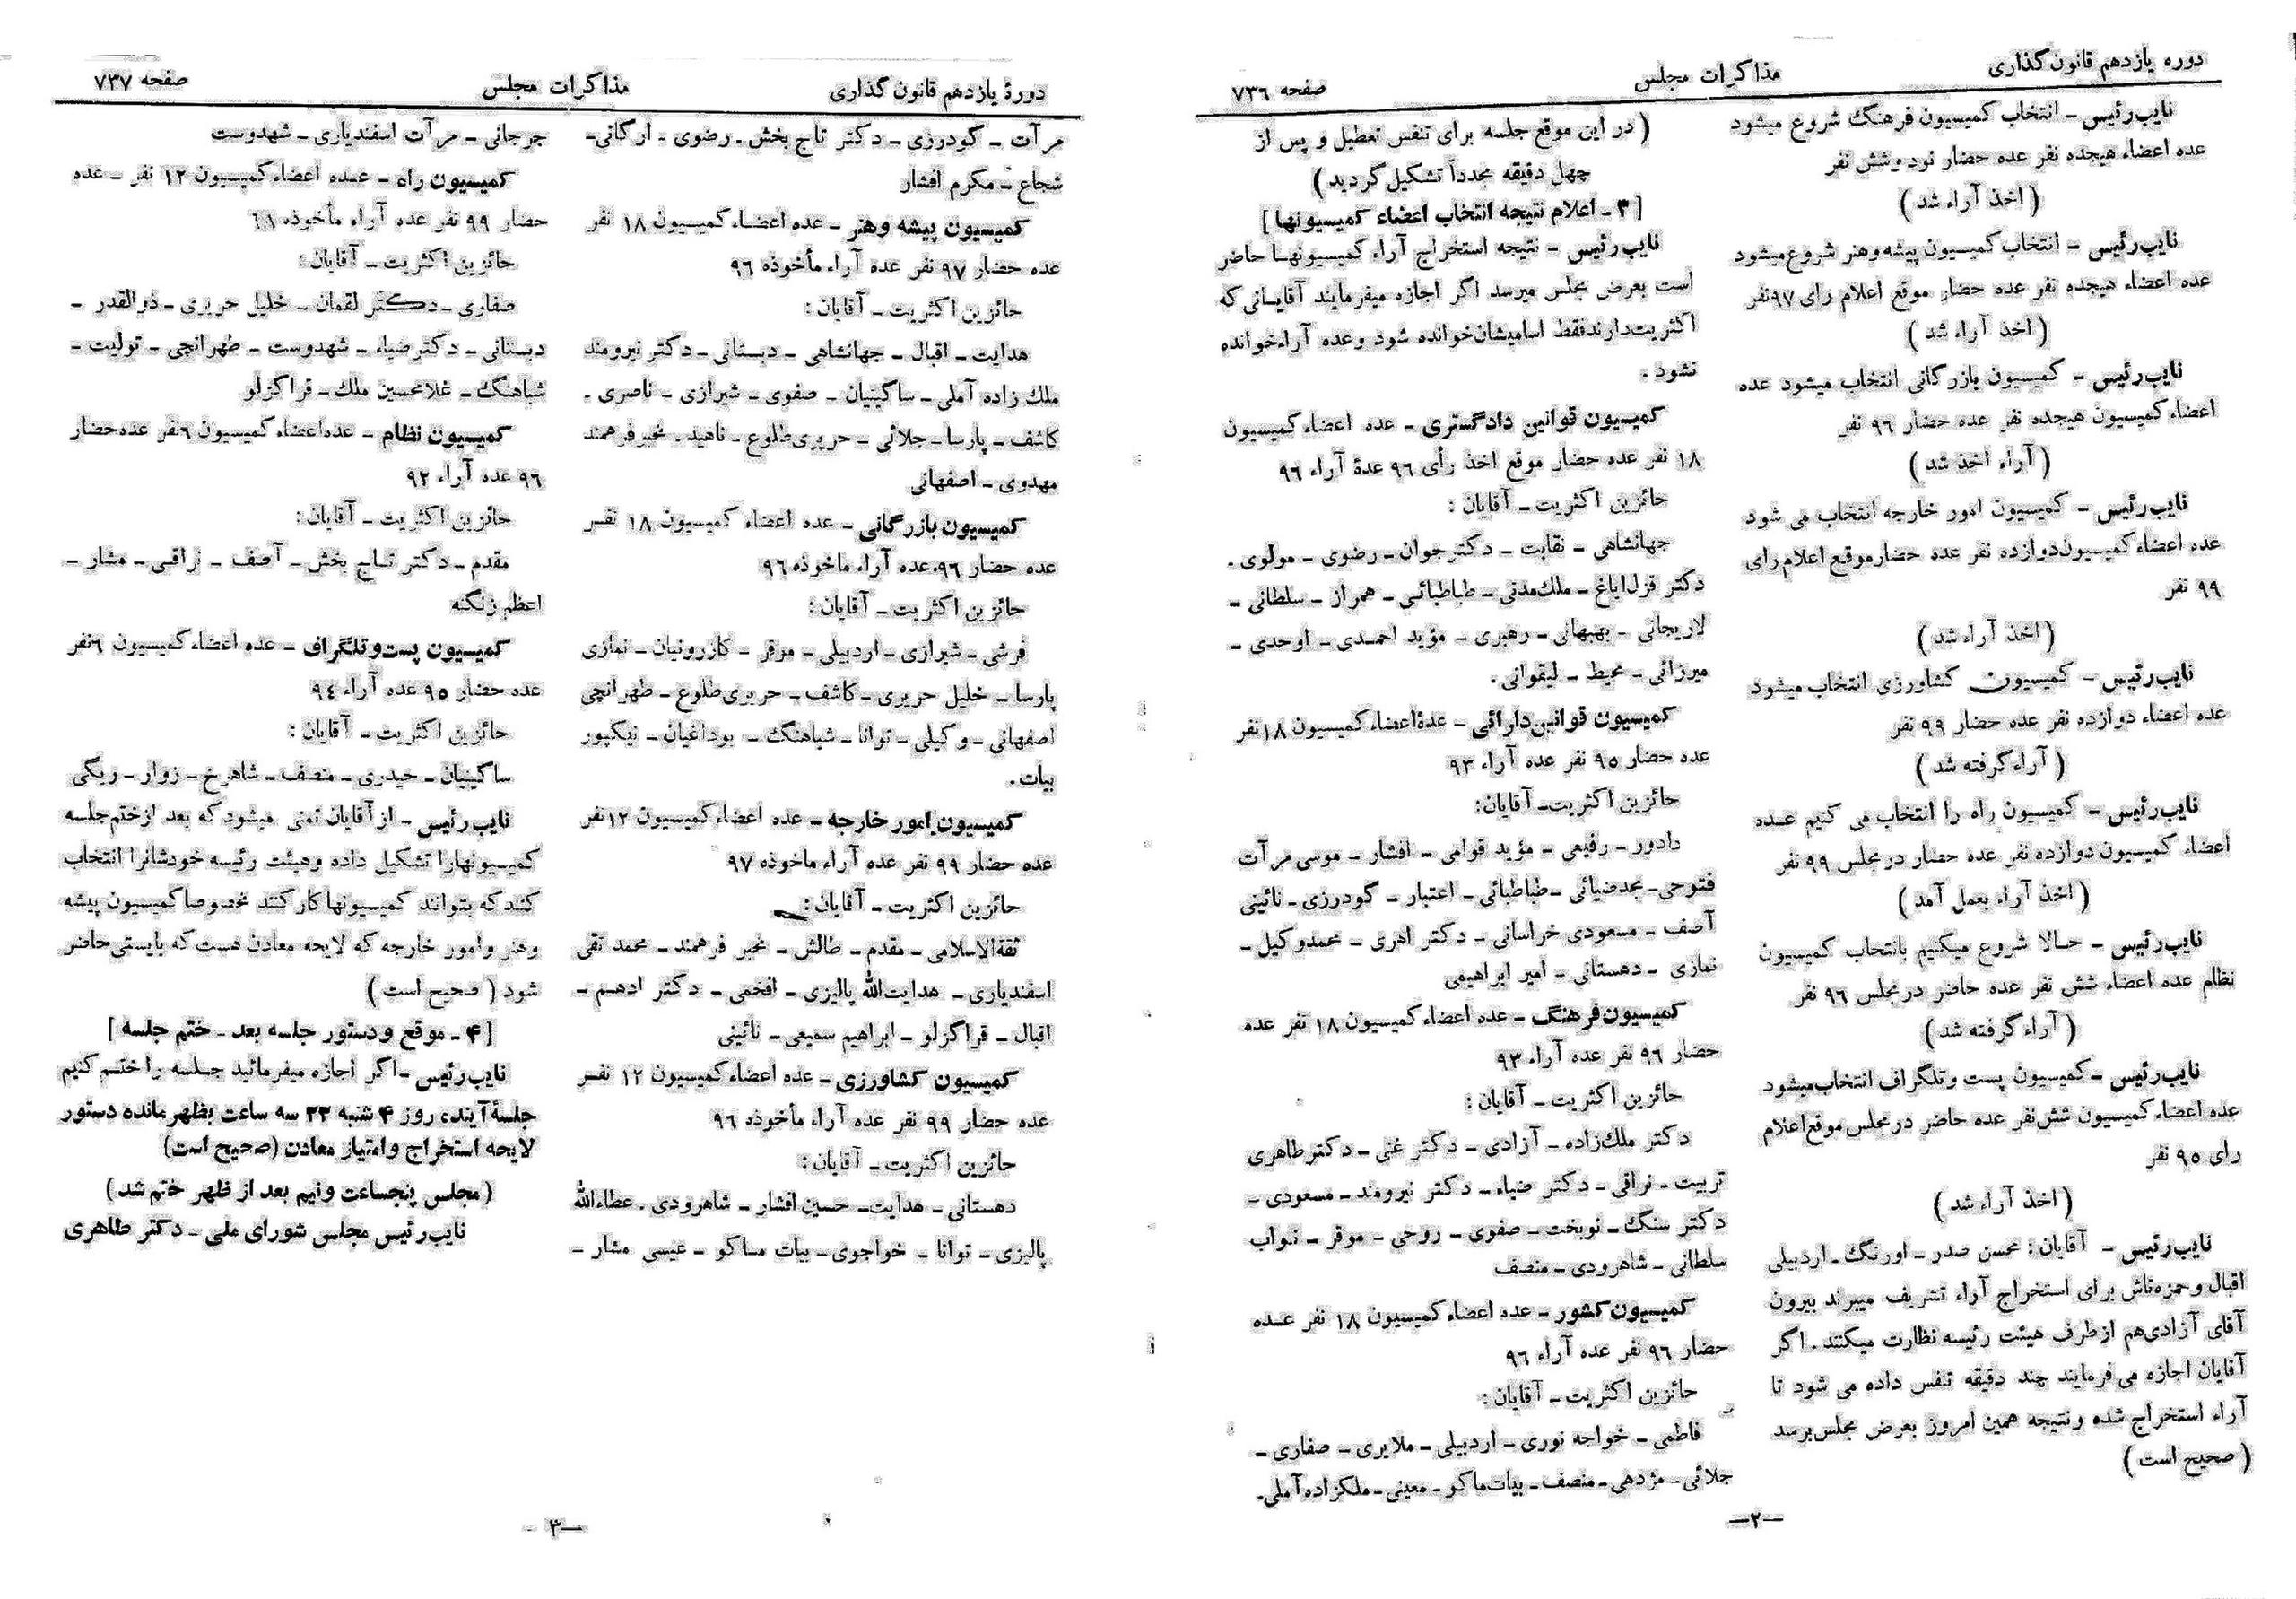 دوره یازدهم قانون‌گذاری
مذاکرات مجلس
صفحه ۷۳۶
نایب‌رئیس - انتخاب کمیسیون فرهنگ شروع میشود
عده اعضاء هیجده نفر عده حضار نود وشش نفر
(اخذ آراء شد)
نایب‌رئیس - انتخاب کمیسیون پیشه وهنر شروع میشود
عده اعضاء هیجده نفر عده حضار موقع اعلام رای ۹۷نفر
(اخذ آراء شد)
نایب‌رئیس - کمیسیون بازرگانی انتخاب میشود عده
اعضاء کمیسیون هیجده نفر عده حضار ۹۶ نفر
(آراء اخذ شد)
نایب‌رئیس - کمیسیون امور خارجه انتخاب می شود
عده اعضاء کمیسیون‌دوازده نفر عده حضارموقع اعلام رای
۹۹ نفر
(اخذ آراء شد)
نایب‌رئیس - کمیسیون کشاورزی انتخاب میشود
عده اعضاء دوازده نفر عده حضار ۹۹ نفر
(آراء گرفته شد)
نایب‌رئیس - کمیسیون راه را انتخاب می کنیم عده
اعضاء کمیسیون دوازده نفر عده حضار در مجلس ۹۹ نفر
(اخذ آراء بعمل آمد)
نایب‌رئیس - حالا شروع میکنیم بانتخاب کمیسیون
نظام عده اعضاء شش نفر عده حاضر در مجلس ۹۶ نفر
(آراء گرفته شد)
نایب‌رئیس - کمیسیون پست و تلگراف انتخاب میشود
عده اعضاء کمیسیون شش‌نفر عده حاضر در مجلس موقع اعلام
رای ۹۵ نفر
(اخذ آراء شد)
نایب‌رئیس - آقایان: محسن صدر - اورنگ - اردبیلی
اقبال وحمزه‌تاش برای استخراج آراء تشریف میبرند بیرون
آقای آزادی‌هم ازطرف هیئت رئیسه نظارت میکنند. اگر
آقایان اجازه می‌فرمایند چند دقیقه تنفس داده می شود تا
آراء استخراج شده ونتیجه همین امروز بعرض مجلس‌برسد
(صحیح است)
(در این موقع جلسه برای تنفس تعطیل و پس از
چهل دقیقه مجدداً تشکیل گردید)
[۳ - اعلام نتیجه انتخاب اعضاء کمیسیونها]
نایب‌رئیس - نتیجه استخراج آراء کمیسیونها حاضر
است بعرض مجلس میرسد اگر اجازه میفرمایند آقایانی که
اکثریت‌دارندفقط اسامیشان‌خوانده شود وعده آراءخوانده
نشود.
کمیسیون قوانین دادگستری - عده اعضاء کمیسیون
۱۸ نفر عده حضار موقع اخذ رأی ۹۶ عدهٔ آراء ۹۶
حائزین اکثریت - آقایان:
جهانشاهی - نقابت - دکترجوان - رضوی - مولوی.
دکتر قزل‌ایاغ - ملک‌مدنی - طباطبائی - همراز - سلطانی -
لاریجانی - بهبهانی - رهبری - مؤید احمدی - اوحدی -
میرزائی - محیط - لیقوانی.
کمیسیون قوانین‌دارائی - عدهٔ‌اعضاء کمیسیون ۱۸نفر
عده حضار ۹۵ نفر عده آراء ۹۳
حائزین اکثریت - آقایان:
دادور - رفیعی - مؤید قوامی - افشار - موسی مرآت
فتوحی - مجدضیائی - طباطبائی - اعتبار - گودرزی - نائینی
آصف - مسعودی خراسانی - دکتر اهری - محمدوکیل -
نمازی - دهستانی - امیر ابراهیمی
کمیسیون‌فرهنگ - عده اعضاء کمیسیون ۱۸ نفر عده
حضار ۹۶ نفر عده آراء ۹۳
حائزین اکثریت - آقایان:
دکتر ملک‌زاده - آزادی - دکتر غنی - دکترطاهری
تربیت - نراقی - دکتر ضیاء - دکتر نیرومند - مسعودی -
دکتر سنگ - نوبخت - صفوی - روحی - موقر - نواب
سلطانی - شاهرودی - منصف
کمیسیون‌کشور - عده اعضاء کمیسیون ۱۸ نفر عده
حضار ۹۶ نفر عده آراء ۹۶
حائزین اکثریت - آقایان:
فاطمی - خواجه نوری - اردبیلی - ملایری - صفاری -
جلائی - مژدهی - منصف - بیات‌ماکو - معینی - ملکزاده آملی.
—۲—
دورهٔ یازدهم قانون گذاری
مذاکرات مجلس
صفحه ۷۳۷
مرآت - گودرزی - دکتر تاج بخش. رضوی - ارگانی-
شجاع - مکرم افشار
کمیسیون پیشه وهنر - عده اعضاء کمیسیون ۱۸ نفر
عده حضار ۹۷ نفر عده آراء مأخوذه ۹۶
حائزین اکثریت - آقایان:
هدایت - اقبال - جهانشاهی - دبستانی - دکتر نیرومند
ملک زاده آملی - ساکینیان - صفوی - شیرازی - ناصری.
کاشف - پارسا - جلائی - حریری‌طلوع - ناهید - مخبرفرهمند
مهدوی - اصفهانی
کمیسیون بازرگانی - عده اعضاء کمیسیون ۱۸ نفر
عده حضار ۹۶.عده آراء ماخوذه ۹۶
حائزین اکثریت - آقایان:
فرشی - شیرازی - اردبیلی - موقر - کازرونیان - نمازی
پارسا - خلیل حریری - کاشف - حریری‌طلوع - طهرانچی
اصفهانی - وکیلی - توانا - شباهنگ - بوداغیان - نیکپور
بیات.
کمیسیون‌امور خارجه - عده اعضاء کمیسیون ۱۲نفر
عده حضار ۹۹ نفر عده آراء ماخوذه ۹۷
حائزین اکثریت - آقایان:
ثقةالاسلامی - مقدم - طالش - مخبر فرهمند - محمد تقی
اسفندیاری - هدایت‌الله پالیزی - افخمی - دکتر ادهم -
اقبال - قراگزلو - ابراهیم سمیعی - نائینی
کمیسیون کشاورزی - عده اعضاء کمیسیون ۱۲ نفر
عده حضار ۹۹ نفر عده آراء مأخوذه ۹۶
حائزین اکثریت - آقایان:
دهستانی - هدایت - حسین افشار - شاهرودی. عطاءالله
پالیزی - توانا - خواجوی - بیات ماکو - عیسی مشار -
جرجانی - مرآت اسفندیاری - شهدوست
کمیسیون راه - عده اعضاء کمیسیون ۱۲ نفر - عده
حضار ۹۹ نفر عده آراء مأخوذه ۶۸
حائزین اکثریت - آقایان:
صفاری - دکتر لقمان - خلیل حریری - ذوالقدر -
دبستانی - دکترضیاء - شهدوست - طهرانچی - تولیت -
شباهنگ - غلامحسین ملک - قراگزلو
کمیسیون نظام - عده‌اعضاء کمیسیون ۶نفر عده‌حضار
۹۶ عده آراء ۹۲
حائزین اکثریت - آقایان:
مقدم - دکتر تاج بخش - آصف - نراقی - مشار -
اعظم زنگنه
کمیسیون پست‌وتلگراف - عده اعضاء کمیسیون ۶نفر
عده حضار ۹۵ عده آراء ۹۴
حائزین اکثریت - آقایان:
ساکینیان - حیدری - منصف - شاهرخ - زوار - ریگی
نایب‌رئیس - از آقایان تمنی میشود که بعد ازختم‌جلسه
کمیسیونهارا تشکیل داده وهیئت رئیسه خودشانرا انتخاب
کنندکه بتوانند کمیسیونها کار کنند مخصوصا کمیسیون پیشه
وهنر وامور خارجه که لایحه معادن هست که بایستی‌حاضر
شود (صحیح است)
[۴ - موقع ودستور جلسه بعد - ختم جلسه]
نایب‌رئیس - اگر اجازه میفرمائید جلسه را ختم کنیم
جلسهٔ آینده روز ۴ شنبه ۲۳ سه ساعت بظهرمانده دستور
لایحه استخراج وامتیاز معادن (صحیح است)
(مجلس پنجساعت ونیم بعد از ظهر ختم شد)
نایب‌رئیس مجلس شورای ملی - دکتر طاهری
—۳—